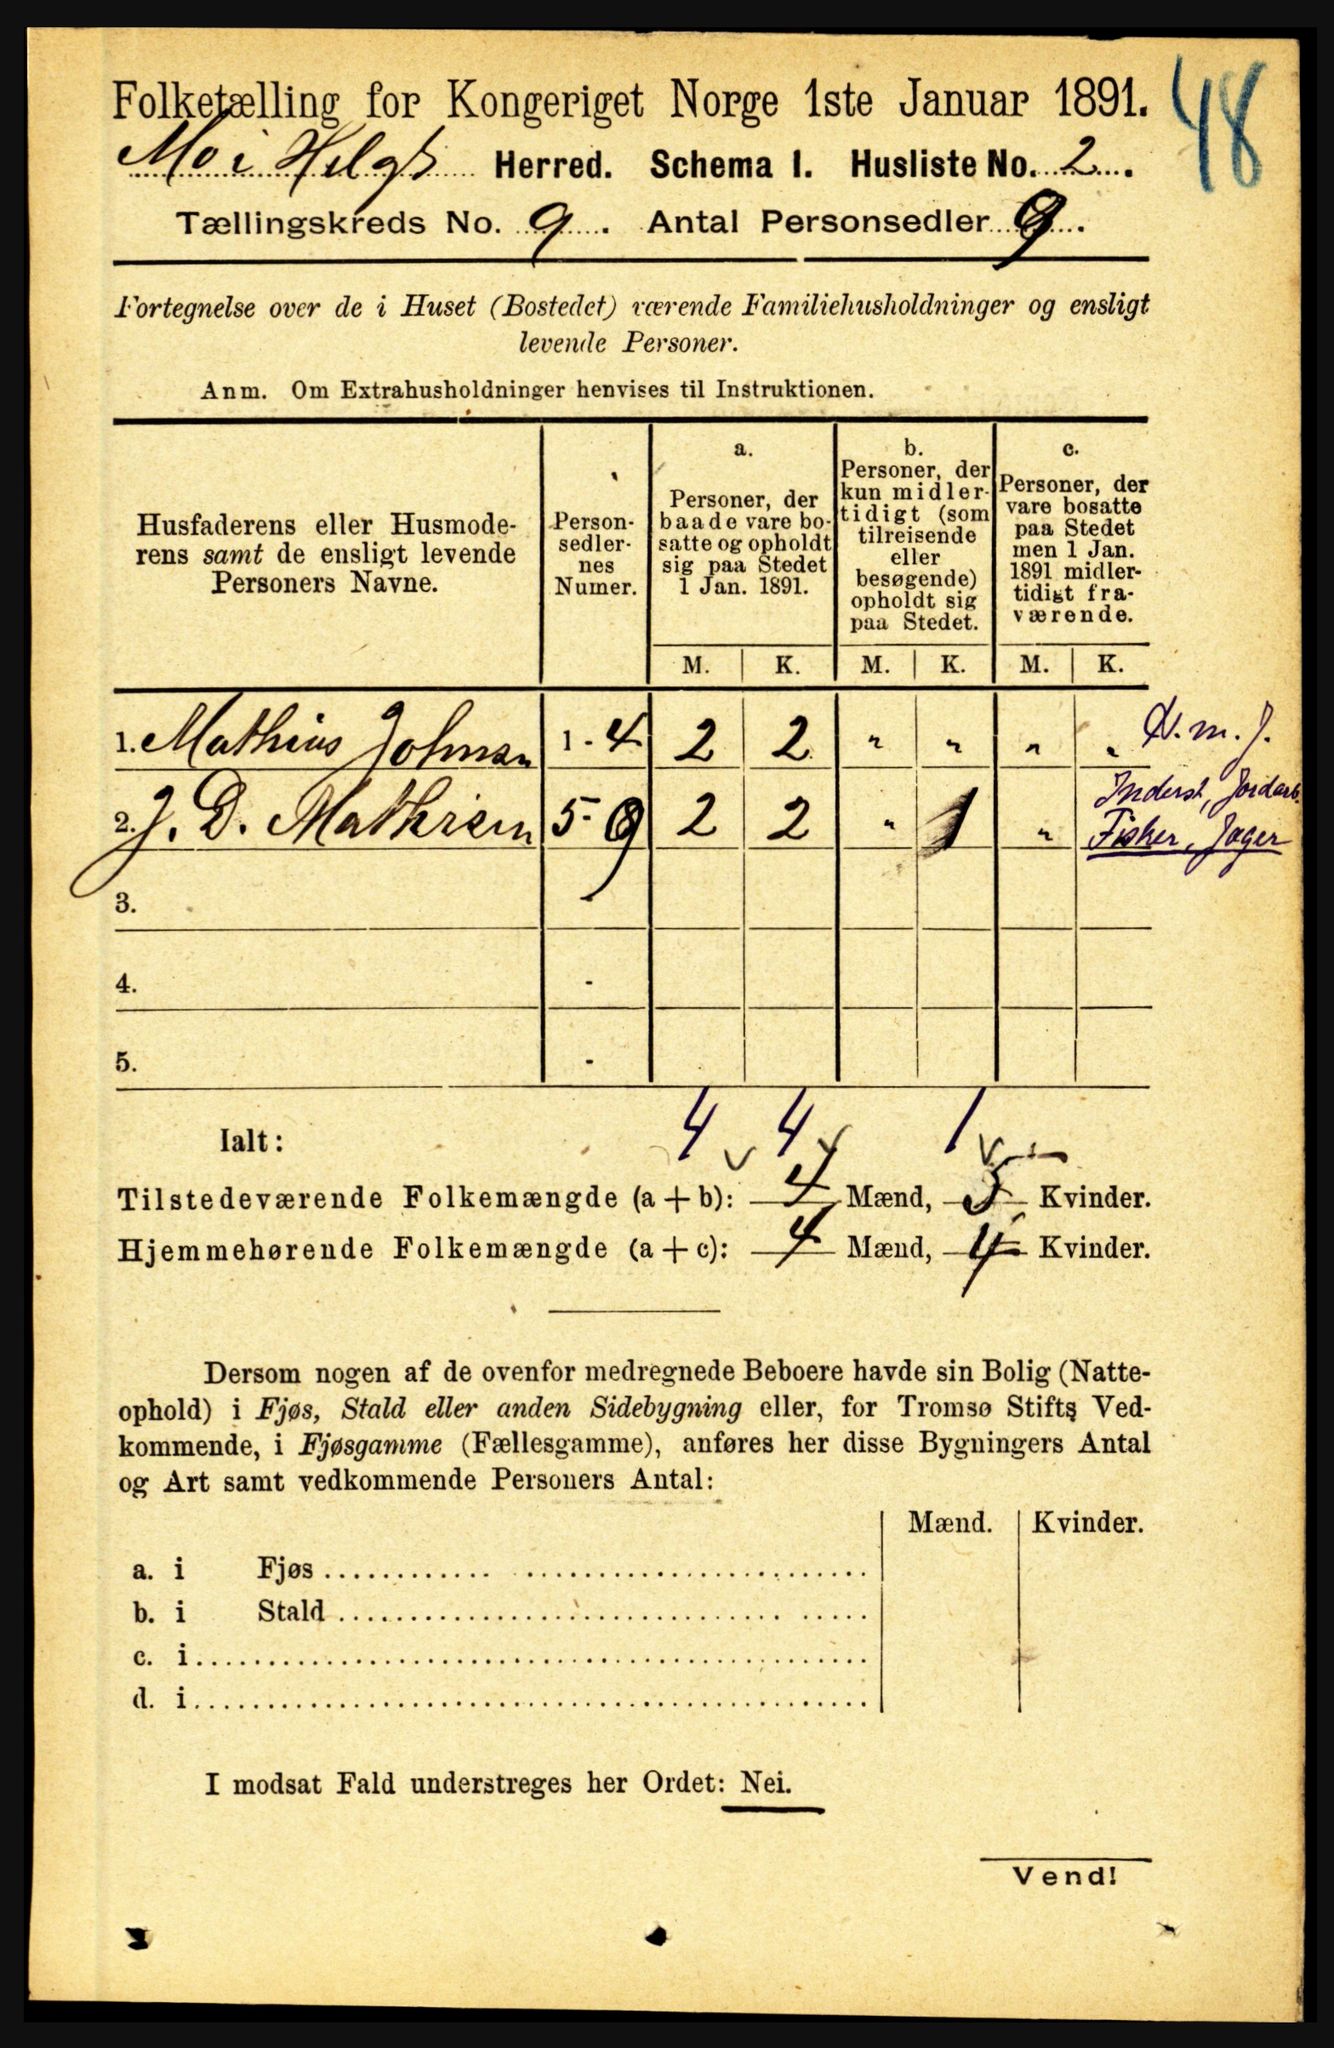 Folketælling for Kongeriget Norge 1ste Januar 1891.
48
Mo i Helg. Herred. Schema I. Husliste No. 2.
Tællingskreds No. 9. Antal Personsedler 9.
Fortegnelse over de i Huset (Bostedet) værende Familiehusholdninger og ensligt
levende Personer.
Anm. Om Extrahusholdninger henvises til Instruktionen.
Husfaderens eller Husmoderens samt de ensligt levende Personers Navne.
Personsedlernes Numer.
a. Personer, der baade vare bosatte og opholdt sig paa Stedet 1 Jan. 1891.
b. Personer, der kun midlertidigt (som tilreisende eller besøgende) opholdt sig paa Stedet.
c. Personer, der vare bosatte paa Stedet men 1 Jan. 1891 midlertidigt fraværende.
M. K. M. K. M. K.
1. Mathias Johnsen 1 - 4 2 2 „ „ „ „ N. m. J.
2. J. D. Mathisen 5 - 9 2 2 „ 1 „ Inderst, Jordarb. Fisker, Jager
3. -
4. -
5. -
Ialt: 4 4 1
Tilstedeværende Folkemængde (a + b): 4 Mænd, 5 Kvinder.
Hjemmehørende Folkemængde (a + c): 4 Mænd, 4 Kvinder.
Dersom nogen af de ovenfor medregnede Beboere havde sin Bolig (Natte-
ophold) i Fjøs, Stald eller anden Sidebygning eller, for Tromsø Stifts Ved-
kommende, i Fjøsgamme (Fællesgamme), anføres her disse Bygningers Antal
og Art samt vedkommende Personers Antal:
Mænd. Kvinder.
a. i Fjøs
b. i Stald
c. i
d. i
I modsat Fald understreges her Ordet: Nei.
Vend!